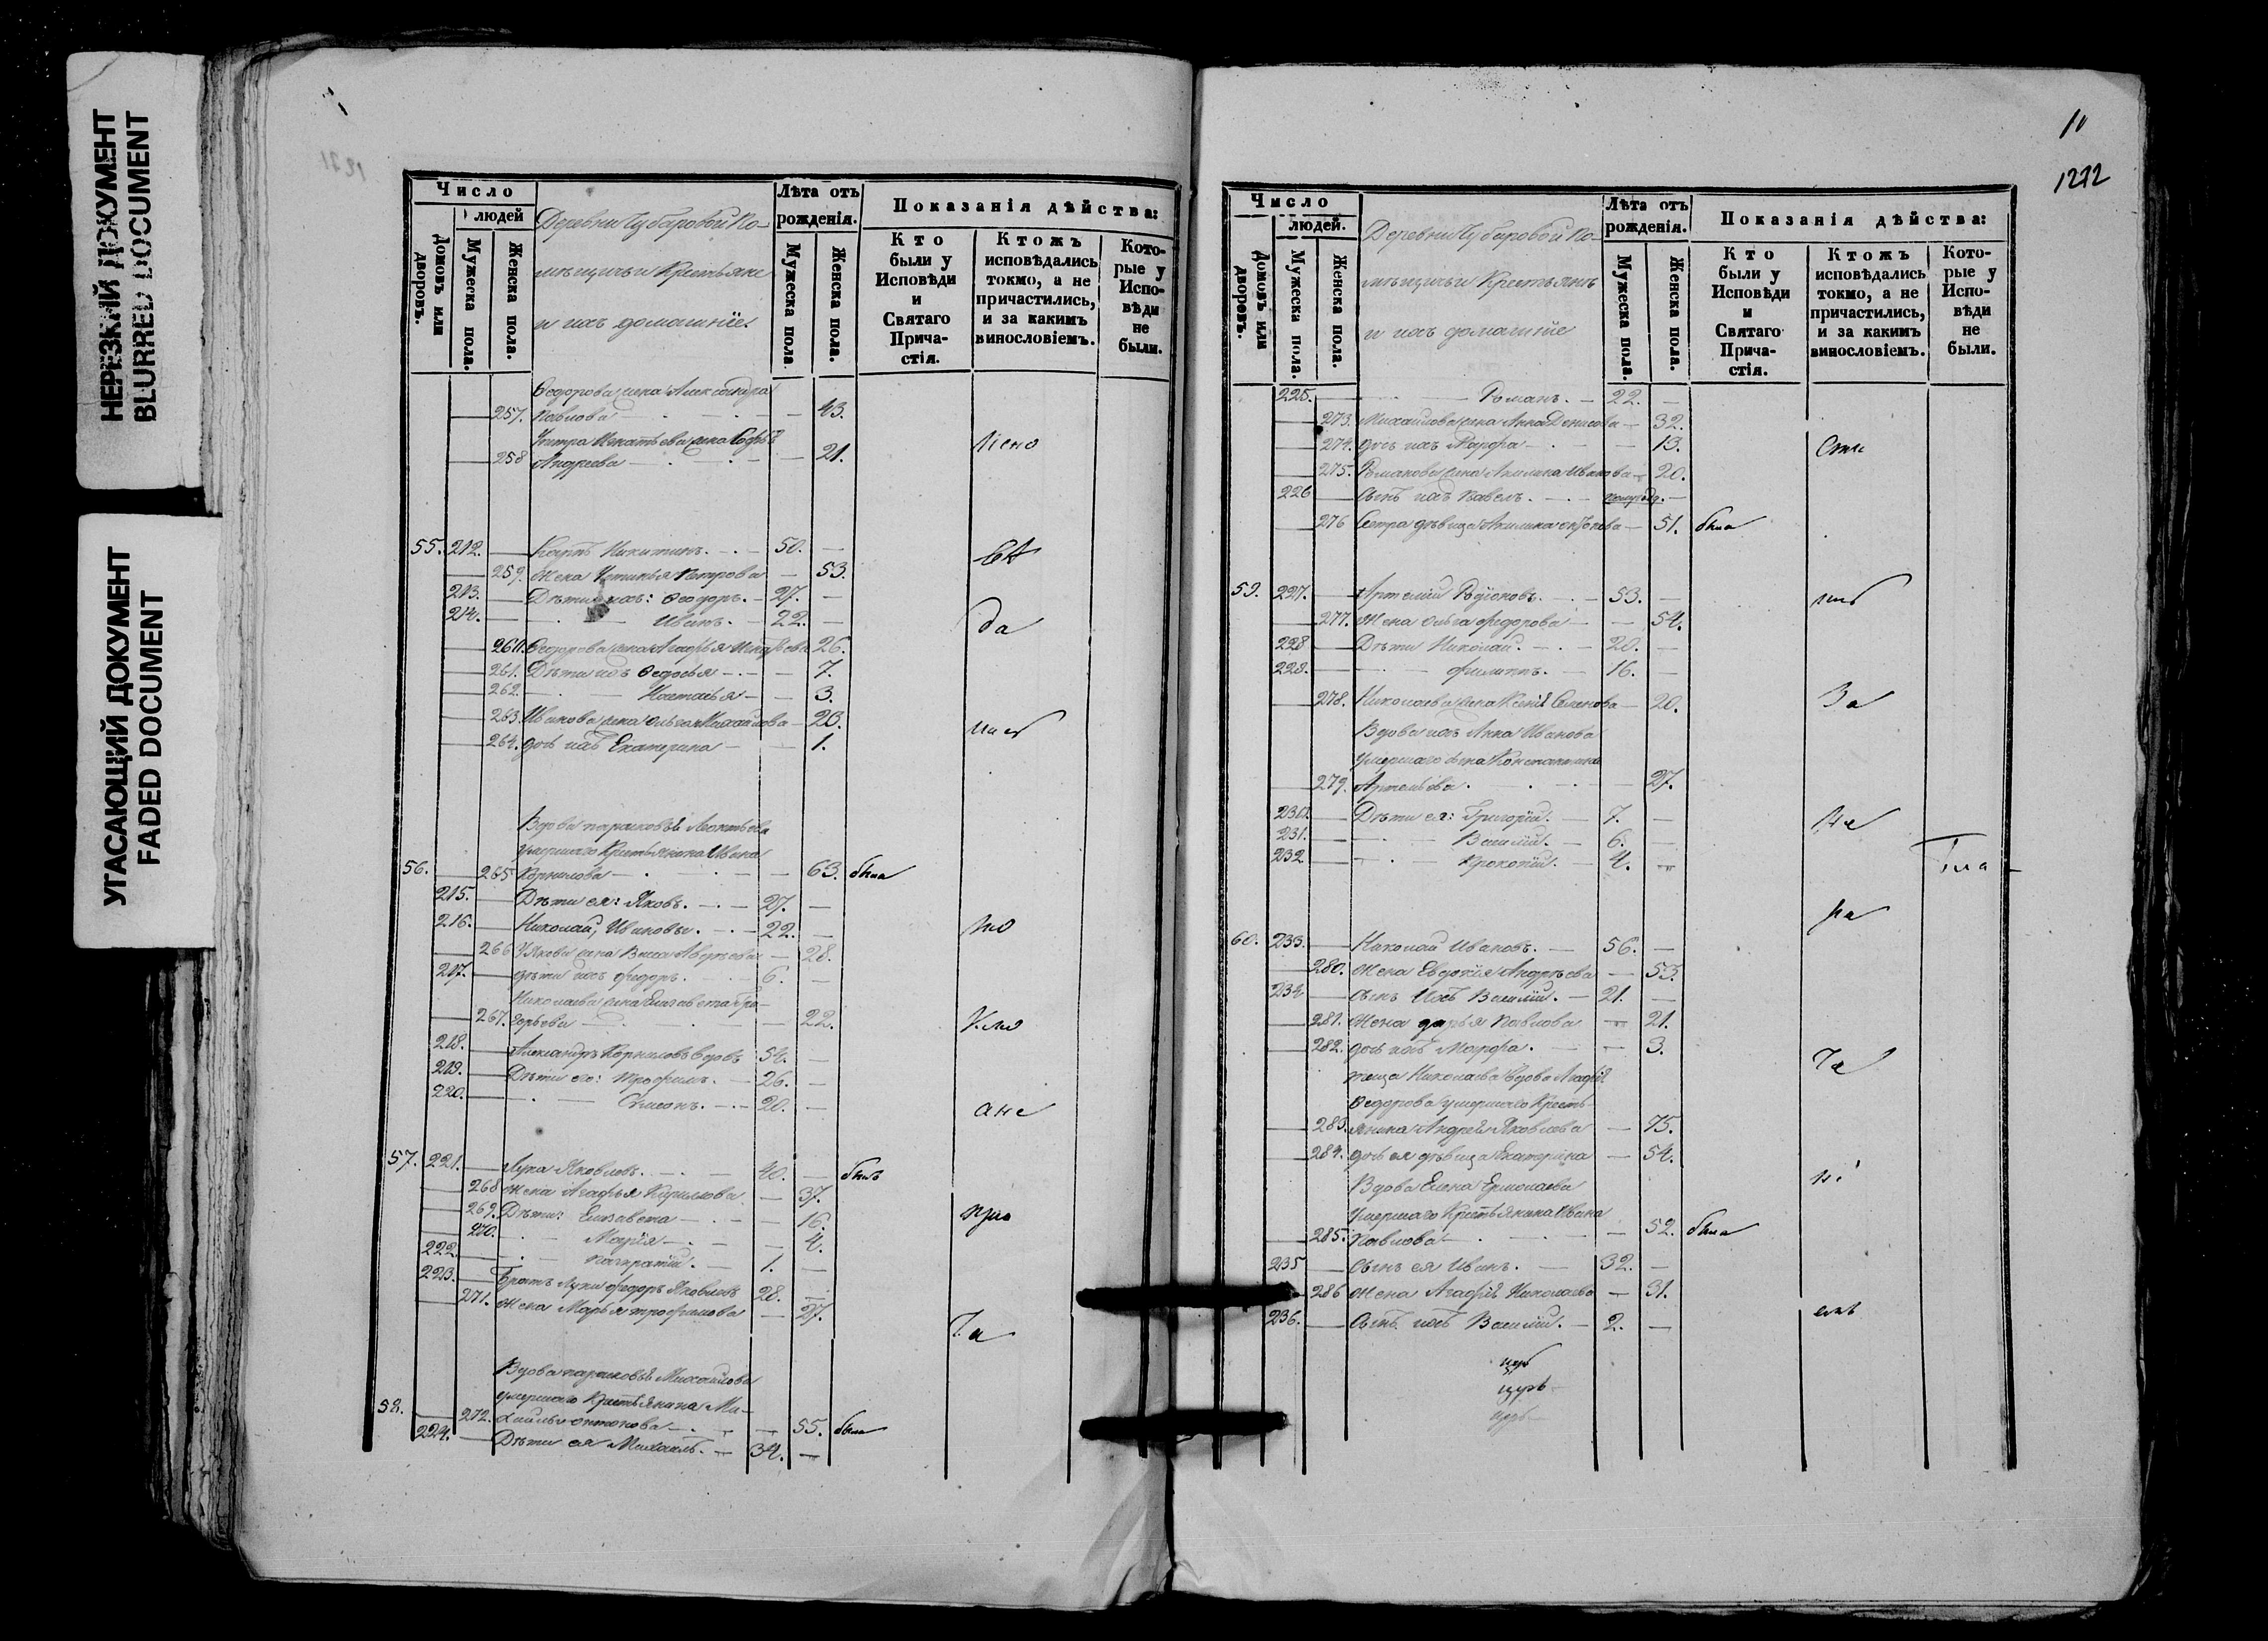 НЕРЕЗКИЙ ДОКУМЕНТ
BLURRED DOCUMENT
УГАСАЮЩИЙ ДОКУМЕНТ
FADED DOCUMENT
Число
людей
Домовъ или дворовъ.
Мужеска пола.
Женска пола.
Деревни Чубаровой по-
мѣщичьи Крестьяне
и ихъ домашніе.
Лѣта отъ рожденія.
Мужеска пола.
Женска пола.
Показанія дѣйства:
Кто были у Исповѣди и Святаго Причастія.
Ктожъ исповѣдались токмо, а не причастились, и за какимъ винословіемъ.
Которые у Исповѣди не были.
Ѳедорова жена Александра
257. Павлова — 43.
жена Софья
258 Андреева — 21.
55. 212. Никитинъ. 50.
259. Жена Устинья Петрова — 53.
213. Дѣти ихъ: Ѳеодоръ. 27.
214. Иванъ. 22.
260. Ѳедорова жена Агафья 26.
261. Дѣти ихъ Ѳедосья 7.
262. Настасья 3.
263. Иванова жена Ольга Михайлова 23.
264. дочь ихъ Екатерина 1.
Вдова Парасковья Леонтьева
умершаго Крестьянина Ивана
56. 265 Корнилова — 63. была
215. Дѣти ея: Яковъ. 27.
216. Николай, Ивановы. 22.
266 Якова жена Васса Авдѣева 28.
217. Дѣти ихъ Федоръ. 6.
Николаева жена Елизавета Гри-
267. горьева — 22.
218. Александръ Корниловъ вдовъ 54.
219. Дѣти его: Трофимъ. 26.
220. Симеонъ. 20.
57. 221. Лука Яковлевъ. 40. былъ
268 Жена Агафья Кирилова — 37.
269. Дѣти: Елизавета — 16.
270. Марія — 4.
222. Панкратій. 1.
223. Братъ Луки Федоръ Яковлевъ 28.
271. Жена Марья Трофимова — 27.
Вдова Парасковья Михайлова
умершаго Крестьянина Ми-
58. 272. хайлы Антонова — 55. была
224. Дѣти ея Михаилъ. 34.
11
1272
Число
людей.
Домовъ или дворовъ.
Мужеска пола.
Женска пола.
Деревни Чубаровой по-
мѣщичьи Крестьянѣ
и ихъ домашніе
Лѣта отъ рожденія.
Мужеска пола.
Женска пола.
Показанія дѣйства:
Кто были у Исповѣди и Святаго Причастія.
Ктожъ исповѣдались токмо, а не причастились, и за какимъ винословіемъ.
Которые у Исповѣди не были.
225. Романъ. 22.
273. Михайлова жена Анна Денисова — 32.
274. дочь ихъ Марфа — 13.
275. Романова жена Акилина Иванова — 20.
226 Сынъ ихъ Павелъ.
276 Сестра дѣвица Акилина Антонова — 51. была
59. 227. Артемій Родіоновъ. 53.
277. Жена Ольга Федорова — 54.
228 Дѣти Николай. 20.
229. Филиппъ. 16.
278. Николаева жена Ксенія Семенова — 20.
Вдова ихъ Анна Иванова
умершаго сына Константина
279. Артемьева — 27.
230. Дѣти ея: Григорій. 7.
231. Василій. 6.
232 Прокопій. 4.
60. 233. Николай Ивановъ. 56.
280. Жена Евдокія Андреева — 53.
234 Сынъ ихъ Василій. 21.
281. Жена Дарья Павлова — 21.
282. дочь ихъ Марфа. 3.
теща Николаева вдова Агафья
Ѳедорова умершаго Кресть-
283. янина Андрея Яковлева — 75.
284. дочь ея дѣвица Екатерина — 54.
Вдова Елена Ермолаева
умершаго Крестьянина Ивана
285. Павлова — 52. была
235 Сынъ ея Иванъ. 32.
286 Жена Агафья Николаева — 31.
236. Сынъ ихъ Василій. 2.